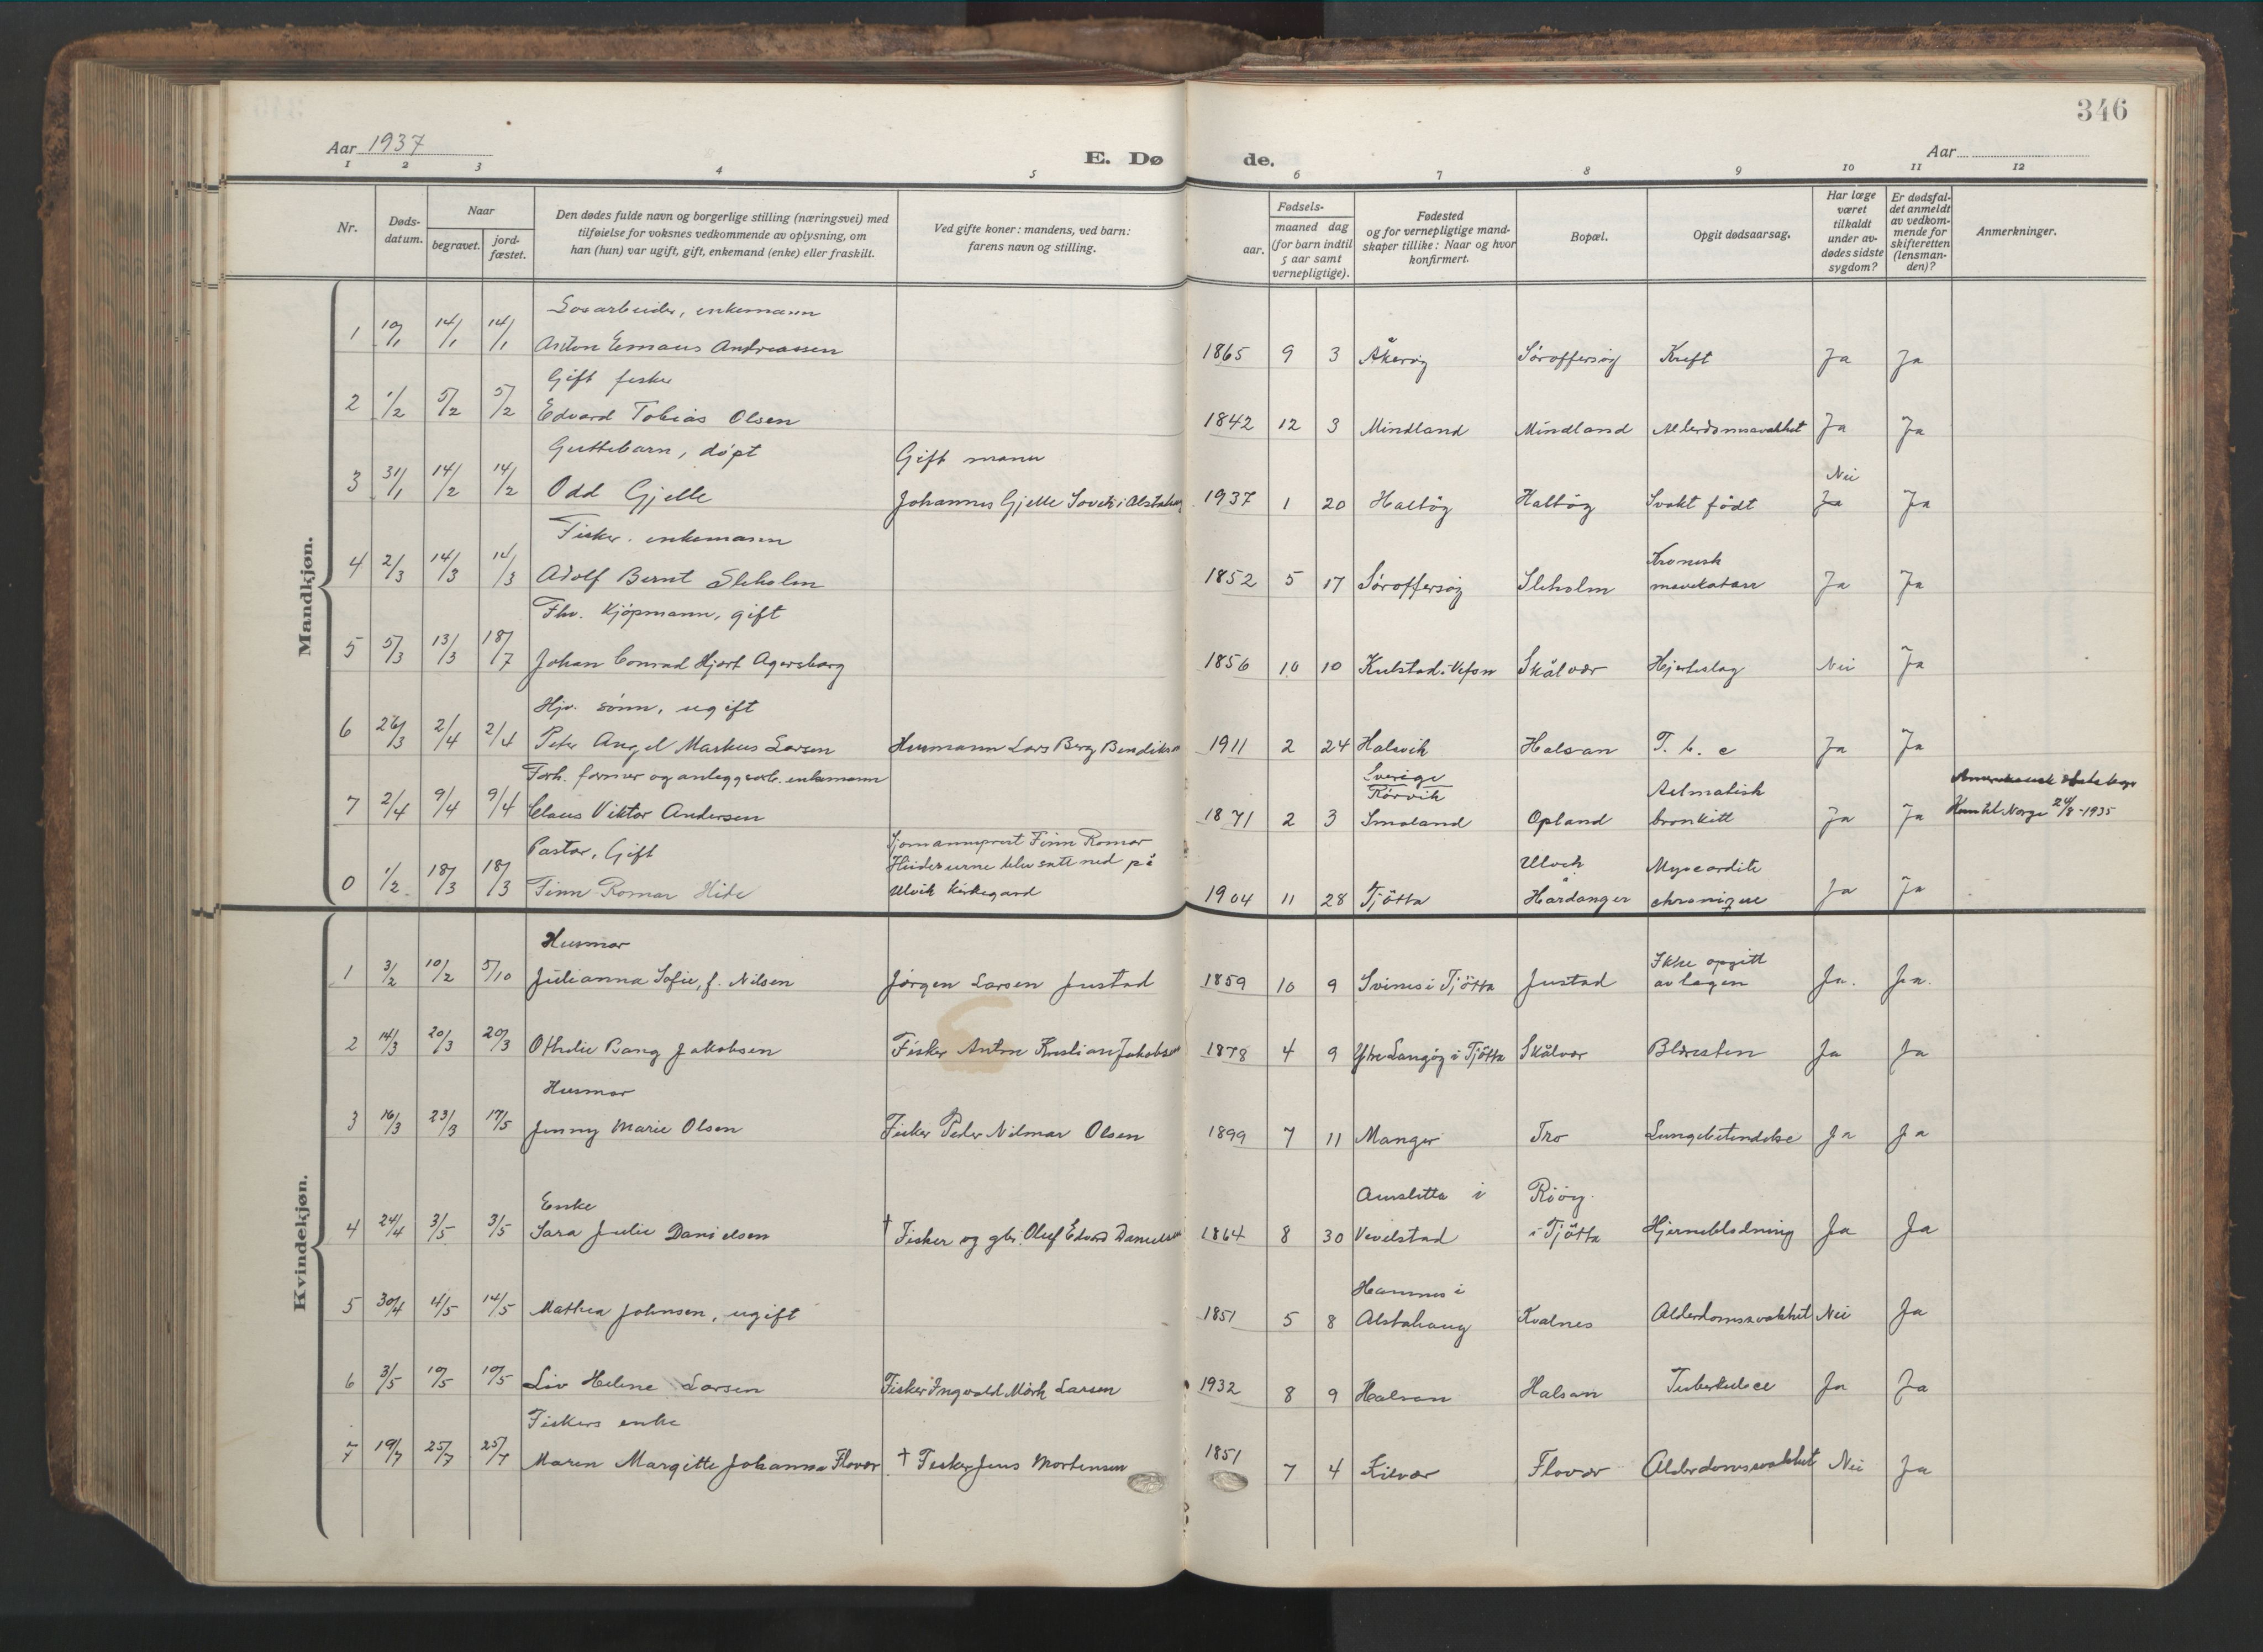 346
Aar 1937
E. Dø de.
Aar
1 2 3 4 5 6 7 8 9 10 11 12
Nr.
Døds-
datum.
Naar
begravet.
jord-
fæstet.
Den dødes fulde navn og borgerlige stilling (næringsvei) med
tilføielse for voksnes vedkommende av oplysning, om
han (hun) var ugift, gift, enkemand (enke) eller fraskilt.
Ved gifte koner: mandens, ved barn:
farens navn og stilling.
Fødsels-
aar.
maaned dag
(for barn indtil
5 aar samt
vernepligtige).
Fødested
og for vernepligtige mand-
skaper tillike: Naar og hvor
konfirmert.
Bopæl.
Opgit dødsaarsag.
Har læge
været
tilkaldt
under av-
dødes sidste
sygdom?
Er dødsfal-
det anmeldt
av vedkom-
mende for
skifteretten
(lensman-
den)?
Anmerkninger.
Mandkjøn.
enkemann
1 10/1 14/1 14/1 Anton Emaus Andreassen 1865 9 3 Åkerøy Søroffersøy Kreft Ja Ja
Gift fisker
2 1/2 5/2 5/2 Edvard Tobias Olsen 1842 12 3 Mindland Mindland Alderdomssvakhet Ja Ja
Guttebarn, døpt Gift mann Nei
3 31/1 14/2 14/2 Odd Gjelle Johannes Gjelle i Alstahaug 1937 1 20 Haltøy Haltøy Svakt født Ja Ja
Fisker. enkemann Kronisk
4 2/3 14/3 14/3 Adolf Bernt Sleholm 1852 5 17 Søroffersøy Sleholm mavekatarr Ja Ja
Fhv. Kjøpmann, gift
5 5/3 13/3 18/7 Johan Conrad Hjort Agersborg 1856 10 10 Kulstad i Vefsn Skålvær Hjerteslag Nei Ja
Hjv. sønn, ugift
6 26/3 2/4 2/4 Peter Angel Markus Larsen Husmann Lars Berg Bendiksen 1911 2 24 Halsvik Halsan T. b. c Ja Ja
Forh. farmer og anleggsarb. enkemann Sverige
Rørvik Astmatisk
7 2/4 9/4 9/4 Claus Viktor Andersen 1871 2 3 Smaland Opland bronkitt Ja Ja Kom til Norge 24/8-1935
Pastor, Gift Sjømannsprest Finn Romar
Hides urne blev satt ned på Ulvik Myocardite
0 1/2 18/3 18/3 Finn Romar Hide Ulvik kirkegard 1904 11 28 Tjøtta Hardanger chronique Ja Ja
Kvindekjøn.
Husmor Ikke opgitt
1 3/2 10/2 5/10 Julianna Sofie, f. Nilsen Jørgen Larsen Justad 1859 10 9 Svines i Tjøtta Justad av legen Ja. Ja.
2 14/3 20/3 20/3 Othelie Bang Jakobsen Fisker Anton Kristian Jakobsen 1878 4 9 Ytre Langøy i Tjøtta Skålvær Blæresten Ja Ja
Husmor
3 16/3 23/3 17/5 Jenny Marie Olsen Fisker Peder Nilmar Olsen 1899 7 11 Manger Tro Lungebetendelse Ja Ja
Enke i Riøy
4 24/4 3/5 3/5 Sara Julie Danielsen † Fisker og gbr. Oluf Edvard Danielsen 1864 8 30 Vevelstad i Tjøtta Hjerneblødning Ja Ja
Hamnes i
5 30/4 4/5 14/5 Mathea Johnsen, ugift 1851 5 8 Alstahaug Kvalnes Alderdomssvakhet Nei Ja
6 3/5 10/5 10/5 Liv Helene Larsen Fisker Ingvald Mørk Larsen 1932 8 9 Halsan Halsan Tuberkulose Ja Ja
Fiskers enke
7 19/7 25/7 25/7 Maren Margitte Johanna Flovær † Fisker Jens Mortensen 1851 7 4 Kilvær Flovær Alderdomssvakhet Nei Ja